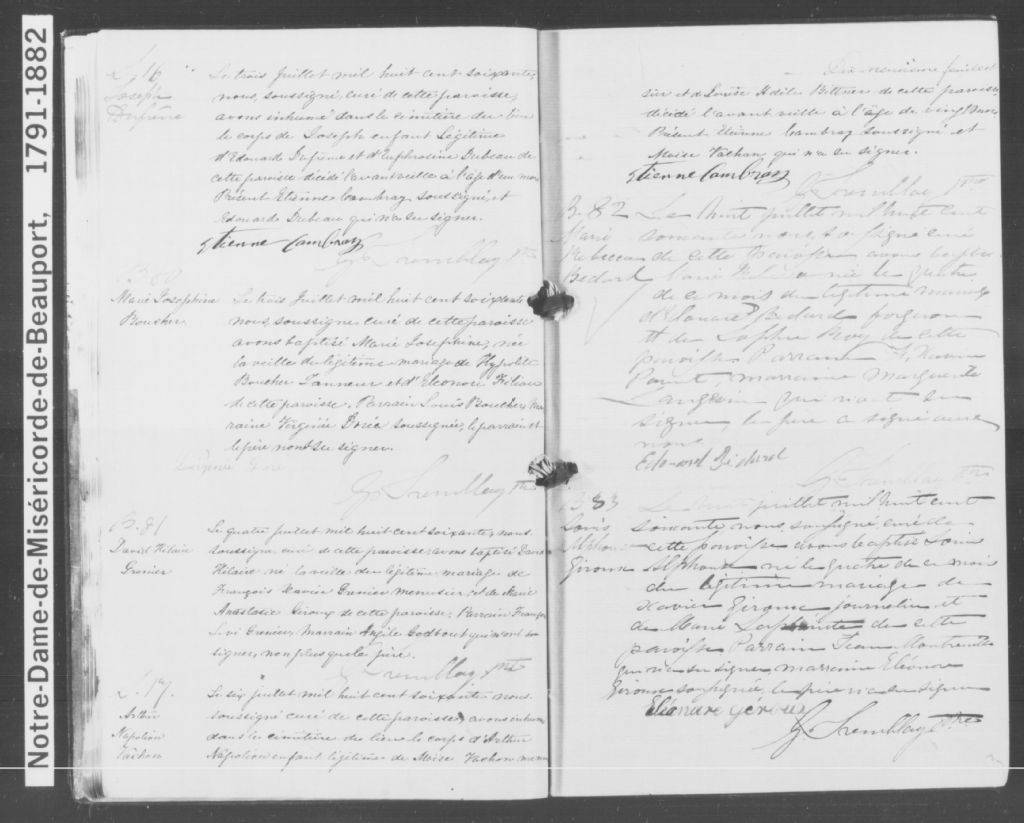 Notre-Dame-de-Miséricorde-de-Beauport, 1791-1882
S. 16
Joseph
Dufresne
Le trois Juillet mil huit cent soixante,
nous, soussigné, curé de cette paroisse,
avons inhumé dans le cimetière du lieu
le corps de Joseph enfant Légitime
d'Edouard Dufresne et d'Euphrosine Dubeau de
cette paroisse décédé l'avant veille à l'age d'un mois
Présent Etienne Cambray, soussigné, et
Edouard Dubeau qui n'a su signer.
Etienne Cambray
G. Tremblay Ptre
B. 80
Marie Josephine
Boucher
Le trois Juillet mil huit cent soixante
nous, soussigné curé de cette paroisse
avons baptisé Marie Josephine, née
la veille du légitime mariage de Hypolite
Boucher Tanneur et d'Eléonore
de cette paroisse. Parrain Louis Boucher, Mar
raine Virginie soussignée, le parrain et
le père n'ont su signer.
G. Tremblay Ptre
B. 81
David Hilaire
Grenier
Le quatre juillet mil huit cent soixante, nous
soussigné, curé de cette paroisse avons baptisé David
Hilaire né la veille du légitime mariage de
François Xavier Grenier menuisier et de Marie
Anastasie Giroux de cette paroisse, Parrain François
Grenier, Marraine Angèle Godbout qui n'ont su
signer, non plus que le père.
G. Tremblay Ptre
S. 17.
Arthur
Napoléon
Vachon
Le six juillet mil huit cent soixante nous
soussigné curé de cette paroisse, avons inhumé
dans le cimetière du lieu le corps d'Arthur
Napoléon enfant légitime de Moïse Vachon menui
Dix neuvième feuillet
sier et de Louise Odile Bittner de cette paroisse
décédé l'avant veille à l'âge de vingt
Présent Etienne Cambray soussigné et
Moise Vachon qui n'a su signer.
Etienne Cambray
G. Tremblay Ptre
B. 82
Marie
Rebecca
Bedard
Le huit juillet mil huit cent
soixante nous, soussigné curé
de cette paroisse avons baptisé
Marie Rebecca née le quatre
de ce mois du légitime mariage
d'Edouard Bedard forgeron
et de Sophie Roy de cette
paroisse Parrain
Parent, marraine Marguerite
Langevin qui n'ont su
signer le père a signé avec
nous
Edouard Bédard
G. Tremblay Ptre
B. 83
Louis
Alphonse
Giroux
Le juillet mil huit cent
soixante nous, soussigné, curé de
cette paroisse avons baptisé Louis
Alphonse né le quatre de ce mois
du légitime mariage de
Xavier Giroux journalier et
de Marie de cette
paroisse Parrain Jean
qui n'a su signer, marraine Eléonore
Giroux soussignée, le père n'a su signer
Eléonore Geroux
G. Tremblay Ptre